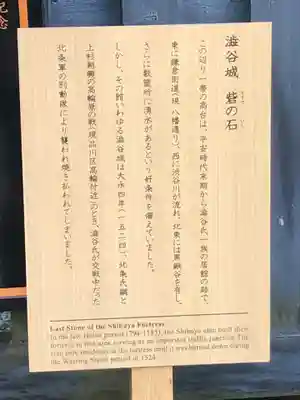 澁谷城 砦の石
とりで いし
この辺り一帯の高台は、平安時代末期から澁谷氏一族の居館の跡で、
東に鎌倉街道(現 八幡通り)、西に渋谷川が流れ、北東には黒鍬谷を有し、
さらに数箇所に湧水があるという好条件を備えていました。
しかし、その賑いわゆる澁谷城は大永四年(一五二四)、北条氏綱と
上杉朝興の高輪原の戦(現 品川区高輪付近)のとき、澁谷氏が交戦中だった
北条軍の別動隊により襲われ焼き払われてしまいました。
Last Stone of the Shibuya Fortress
In the late Heian period (794-1185), the Shibuya clan built their
fortress in this area serving as an important traffic junction. The
last only remainder is the fortress itself it was burned down during
the Warring States period in 1524.
記念